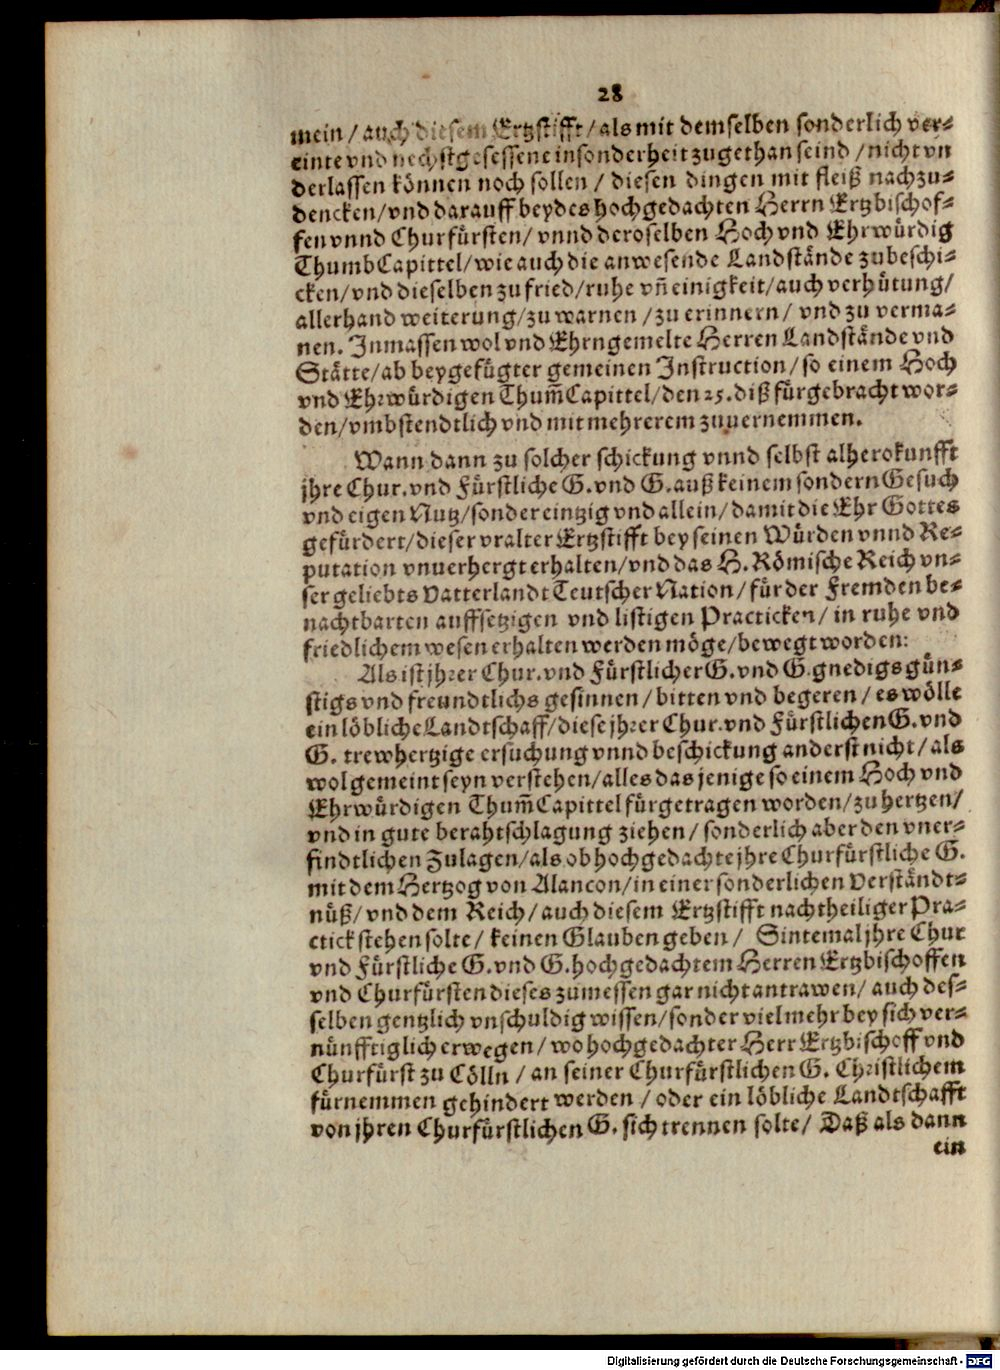 28
mein / auch diesem Ertzstifft / als mit demselben sonderlich ver-
einte vnd nechstgesessene insonderheit zugethan seind / nicht vn
derlassen können noch sollen / diesen dingen mit fleiß nachzu-
dencken / vnd darauff beydes hochgedachten Herrn Ertzbischof-
fen vnnd Churfürsten / vnnd deroselben Hoch vnd Ehrwürdig
ThumbCapittel / wie auch die anwesende Landstände zubeschi-
cken / vnd dieselben zu fried / ruhe vñ einigkeit / auch verhütung /
allerhand weiterung / zu warnen / zu erinnern / vnd zu verma-
nen. Inmassen wol vnd Ehrngemelte Herren Landstände vnd
Stätte / ab beygefügter gemeinen Instruction / so einem Hoch
vnd Ehrwürdigen Thum̃Capittel / den 25. diß fürgebracht wor-
den / vmbstendtlich vnd mit mehrerem zuuernemmen.
Wann dann zu solcher schickung vnnd selbst alherokunfft
jhre Chur. vnd Fürstliche G. vnd G. auß keinem sondern Gesuch
vnd eigen Nutz / sonder eintzig vnd allein / damit die Ehr Gottes
gefürdert / dieser vralter Ertzstifft bey seinen Würden vnnd Re-
putation vnuerhergt erhalten / vnd das H. Römische Reich vn-
ser geliebts Vatterlandt Teutscher Nation / für der Fremden be-
nachtbarten auffsetzigen vnd listigen Practicken / in ruhe vnd
friedlichem wesen erhalten werden möge / bewegt worden:
Als ist jhrer Chur. vnd Fürstlicher G. vnd G. gnedigs gün-
stigs vnd freundtlichs gesinnen / bitten vnd begeren / es wölle
ein löbliche Landtschaff / diese jhrer Chur. vnd Fürstlichen G. vnd
G. trewhertzige ersuchung vnnd beschickung anderst nicht / als
wolgemeint seyn verstehen / alles das jenige so einem Hoch vnd
Ehrwürdigen Thum̃Capittel fürgetragen worden / zu hertzen /
vnd in gute berahtschlagung ziehen / sonderlich aber den vner-
findtlichen Zulagen / als ob hochgedachte jhre Churfürstliche G.
mit dem Hertzog von Alancon / in einer sonderlichen Verständt-
nüß / vnd dem Reich / auch diesem Ertzstifft nachtheiliger Pra-
ctick stehen solte / keinen Glauben geben / Sintemal jhre Chur
vnd Fürstliche G. vnd G. hochgedachtem Herren Ertzbischoffen
vnd Churfürsten dieses zumessen gar nicht antrawen / auch des-
selben gentzlich vnschuldig wissen / sonder vielmehr bey sich ver-
nünfftiglich erwegen / wo hochgedachter Herr Ertzbischoff vnd
Churfürst zu Cölln / an seiner Churfürstlichen G. Christlichem
fürnemmen gehindert werden / oder ein löbliche Landtschafft
von jhren Churfürstlichen G. sich trennen solte / Daß als dann
ein
Digitalisierung gefördert durch die Deutsche Forschungsgemeinschaft - DFG